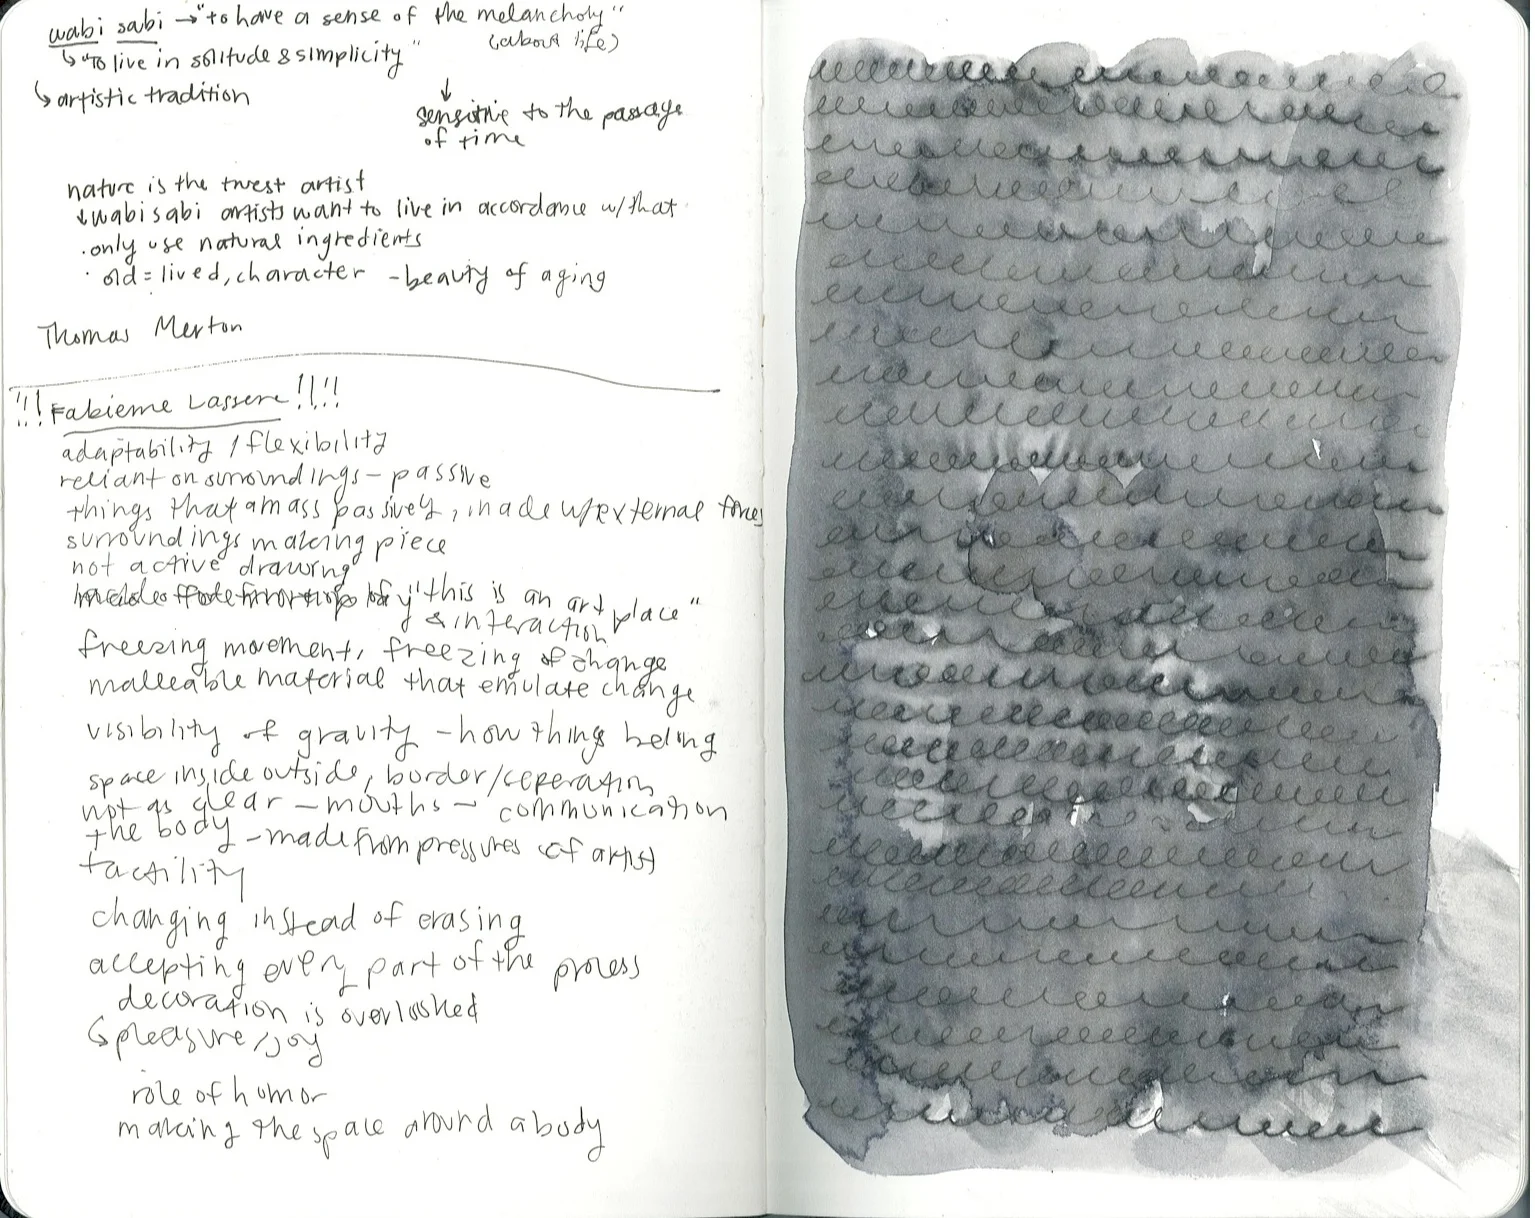 wabi sabi → "to have a sense of the melancholy"
(about life)
↳ "to live in solitude & simplicity"
↳ artistic tradition
↓
sensitive to the passage
of time
nature is the truest artist
↓ wabi sabi artists want to live in accordance w/ that
· only use natural ingredients
· old = lived, character - beauty of aging
Thomas Merton
!!! Fabienne Lassere !!!!
adaptability / flexibility
reliant on surroundings - passive
things that amass passively, made w/ external forces
surroundings making piece
not active drawing
"this is an art place"
& interaction
freezing movement, freezing of change
malleable material that emulate change
visibility of gravity - how things belong
space inside outside, border/ceperation
not as clear - mouths - communication
the body - made from pressures of artist
tactility
changing instead of erasing
accepting every part of the process
decoration is overlooked
↳ pleasure/joy
role of humor
making the space around a body